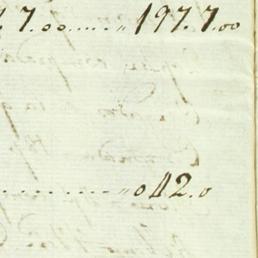 7.00....„197.7.00
.............„042.0